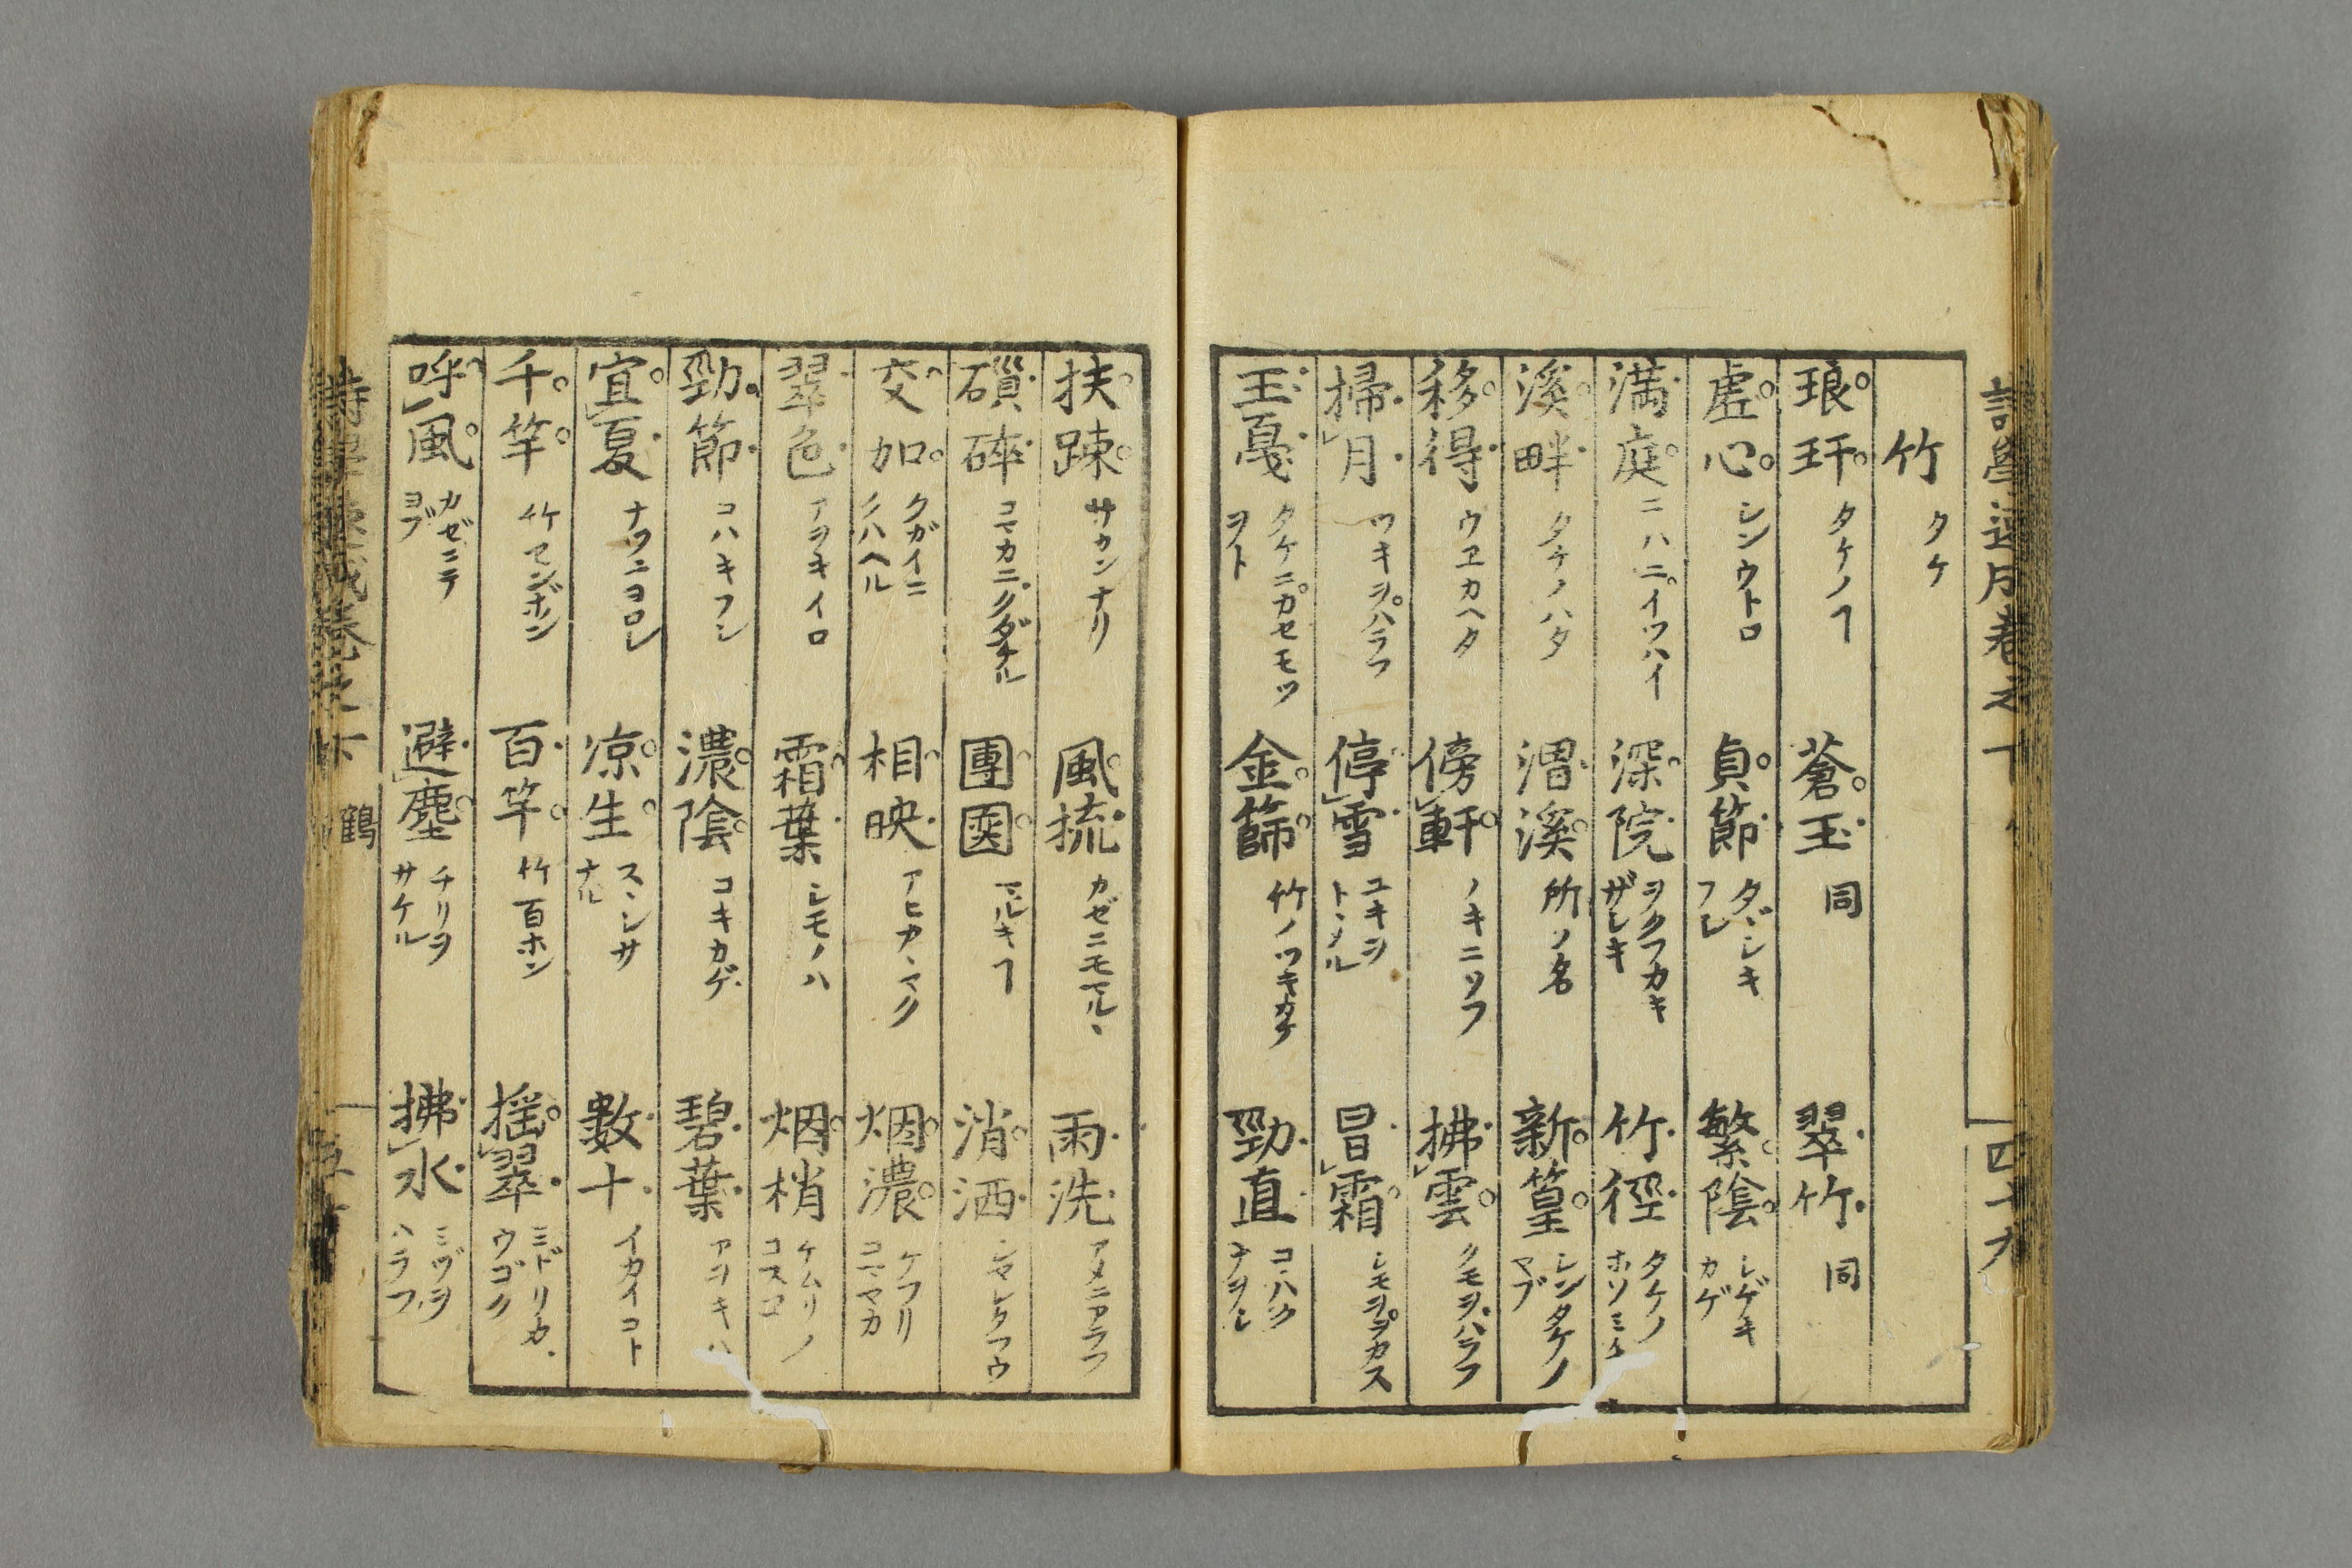 竹 タケ
琅玕 タケノヿ 蒼玉 同 翠竹 同
虚心 シンウトロ 貞節 タヾシキフシ 繁陰 シゲキカゲ
満庭 ニハニイツハイ 深院 ヲクフカキザシキ 竹徑 タケノホソミチ
溪畔 タケノハタ 渭溪 所ノ名 新篁 シンタケノヤブ
移得 ウヱカヘタ 傍軒 ノキニソフ 拂雲 クモヲハラフ
掃月 ツキヲハラフ 停雪 ユキヲトヽメル 冒霜 シモヲヲカス
玉戞 タケニカセモツヲト 金篩 竹ノツキカケ 勁直 コハクナヲシ
四十九
扶踈 サカンナリ 風梳 カゼニモマルヽ 雨洗 アメニアラフ
磒碎 コマカニクダケル 團圝 マルキヿ 消洒 シマレクフウ
交加 タガイニクハヘル 相映 アヒカヽマク 烟濃 ケフリコマヤカ
翠色 アヲキイロ 霜葉 シモノハ 烟梢 ケムリノコスヱ
勁節 コハキフシ 濃陰 コキカゲ 碧葉 アヲキハ
宜夏 ナツニヨロシ 凉生 スヽシサナル 數十 イカイコト
千竿 竹センボン 百竿 竹百ホン 揺翠 ミドリカウゴク
呼風 カゼニテヨブ 避塵 チリヲサケル 拂水 ミヅヲハラフ
鶴